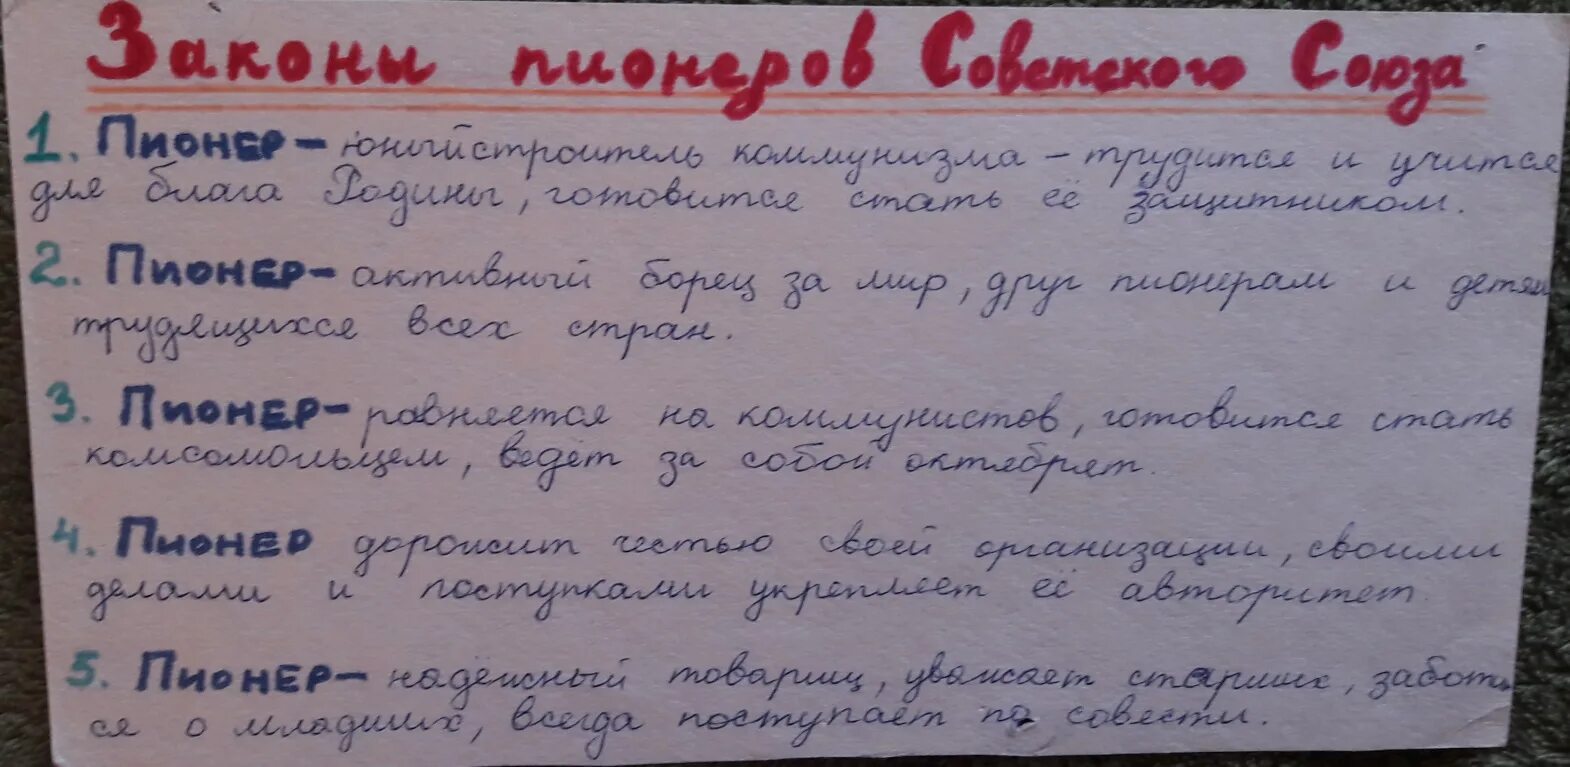 Законы пионеров Советского Союза
1. Пионер – юный строитель коммунизма – трудится и учится
для блага Родины, готовится стать её защитником.
2. Пионер – активный борец за мир, друг пионерам и детям
трудящихся всех стран.
3. Пионер – равняется на коммунистов, готовится стать
комсомольцем, ведёт за собой октябрят.
4. Пионер дорожит честью своей организации, своими
делами и поступками укрепляет её авторитет
5. Пионер – надёжный товарищ, уважает старших, заботит
ся о младших, всегда поступает по совести.